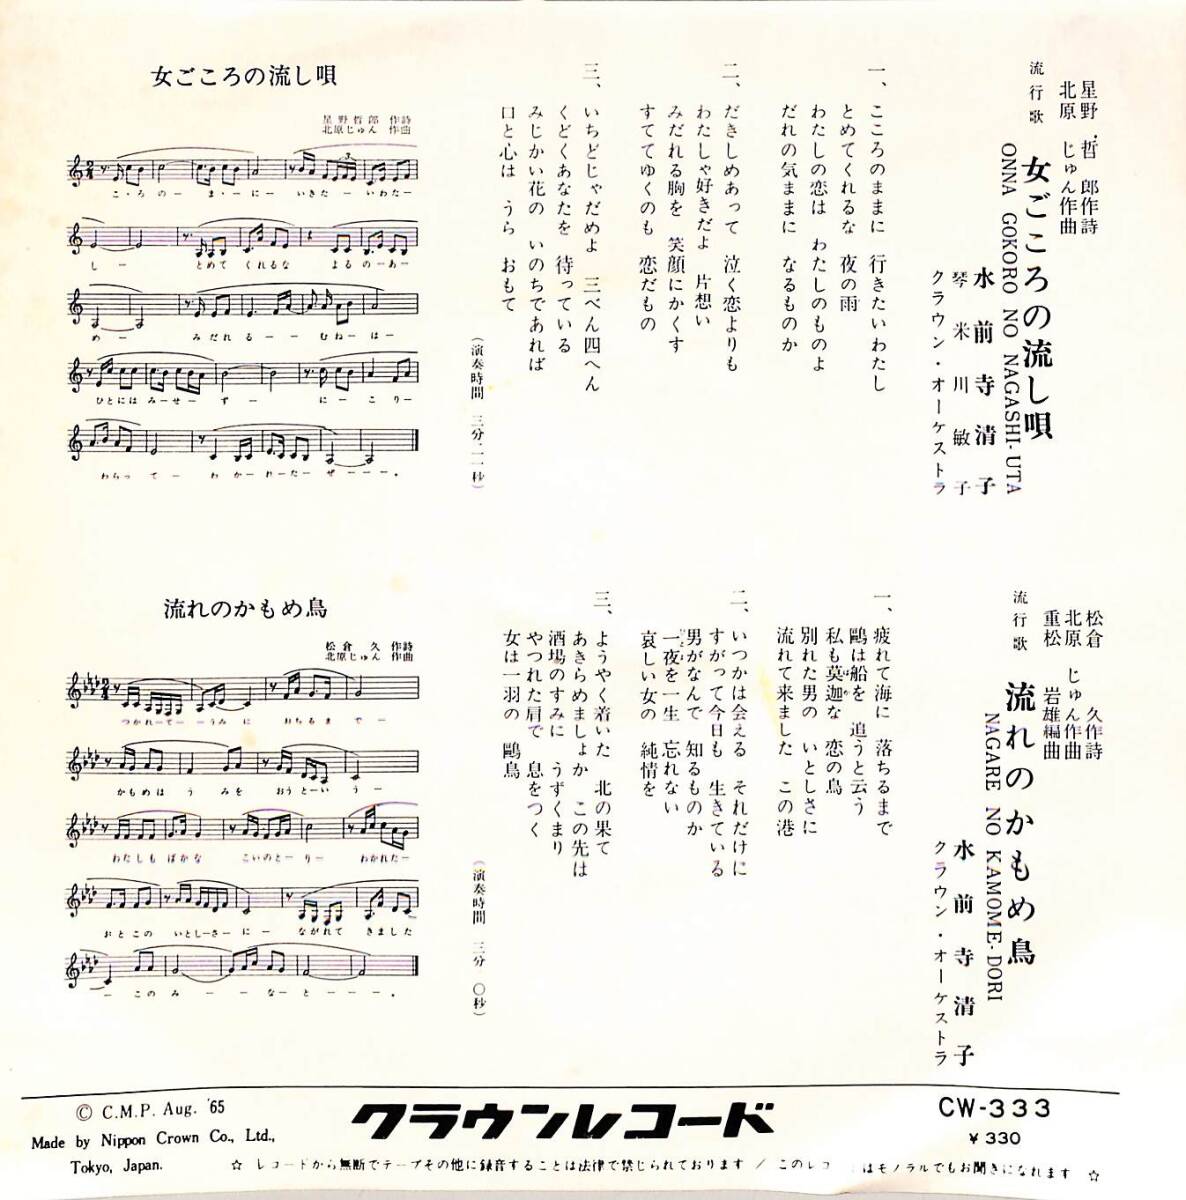 星野哲郎作詩
北原じゅん作曲
流行歌 女ごころの流し唄
ONNA GOKORO NO NAGASHI-UTA
水前寺清子
琴 米川敏子
クラウン・オーケストラ
一、こころのままに 行きたいわたし
とめてくれるな 夜の雨
わたしの恋は わたしのものよ
だれの気ままに なるものか
二、だきしめあって 泣く恋よりも
わたしゃ好きだよ 片想い
みだれる胸を 笑顔にかくす
すててゆくのも 恋だもの
三、いちどじゃだめよ 三べん四へん
くどくあなたを 待っている
みじかい花の いのちであれば
口と心は うら おもて
(演奏時間 三分二一秒)
女ごころの流し唄
星野哲郎 作詩
北原じゅん 作曲
こ・ろのー まーにー いきたーいわたー
しー とめて くれるな よるのーあー
めー みだれるーー むねーはー
ひとにはみーせー ずー にーこりー
わらってー わかーれーたーぜーーー。
松倉久作詩
北原じゅん作曲
重松岩雄編曲
流行歌 流れのかもめ鳥
NAGARE NO KAMOME-DORI
水前寺清子
クラウン・オーケストラ
一、疲れて海に 落ちるまで
鷗は船を 追うと云う
私も莫迦な 恋の鳥
別れた男の いとしさに
流れて来ました この港
二、いつかは会える それだけに
すがって今日も 生きている
男がなんで 知るものか
一夜を一生 忘れない
哀しい女の 純情を
三、ようやく着いた 北の果て
あきらめましょか この先は
酒場のすみに うずくまり
やつれた肩で 息をつく
女は一羽の 鷗鳥
(演奏時間 三分 〇秒)
流れのかもめ鳥
松倉 久 作詩
北原じゅん 作曲
つかれーてーーうみに おちるまでー
かもめは うみを おうとーいうー
わたしも ばかな こいのとーりー わかれたー
おとこの いとしーさーにー ながれて きました
ーこのみーー なーとーーー。
© C.M.P. Aug. '65
Made by Nippon Crown Co., Ltd.,
Tokyo, Japan.
クラウンレコード
CW-333
¥330
☆ レコードから無断でテープその他に録音することは法律で禁じられております / このレコードはモノラルでもお聞きになれます ☆